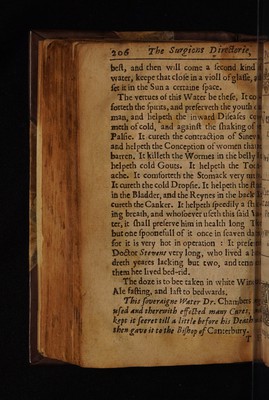 206 The Surgions Directorie,
best, and then will come a second kind
water, keepe that close in a violl of glasse,
set it in the Sun a certaine space.
The vertues of this Water be these, It co
forteth the spirits, and preserveth the youth
man, and helpeth the inward Diseases co
meth of cold, and against the shaking of
Palsie. It cureth the contraction of Sinew
and helpeth the Conception of women that
barren. It killeth the Wormes in the belly
helpeth cold Gouts. It helpeth the Too
ache. It comforteth the Stomack very
It cureth the cold Dropsie. It helpeth the
in the Bladder, and the Reynes in the back
cureth the Canker. It helpeth speedily a
ing breath, and whosoever useth this said
ter, it shall preserve him in health long
but one spoonefull of it once in seaven
for it is very hot in operation : It
Doctor Stevens very long, who lived a
dreth yeares lacking but two, and
them hee lived bed-rid.
The doze is to bee taken in white
Ale fasting, and last to bedwards.
This soveraigne Water Dr. Chambers
used and therewith effected many Cures,
kept it secret till a little before his Death
then gave it to the Bishop of Canterbury.
T